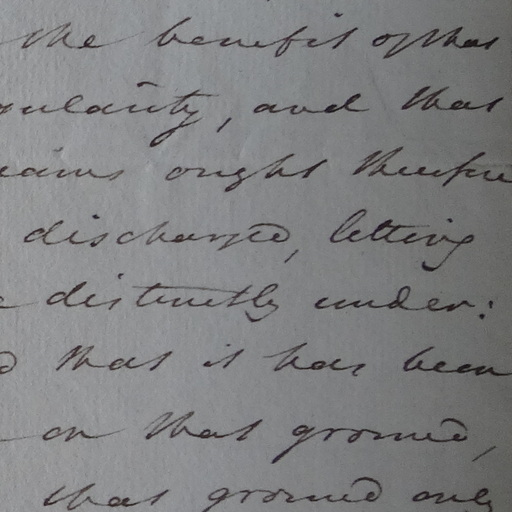 the benefit of that
gularity, and that
ought therefore
discharged, letting
distinctly under:
that it has been
on that ground,
that ground only